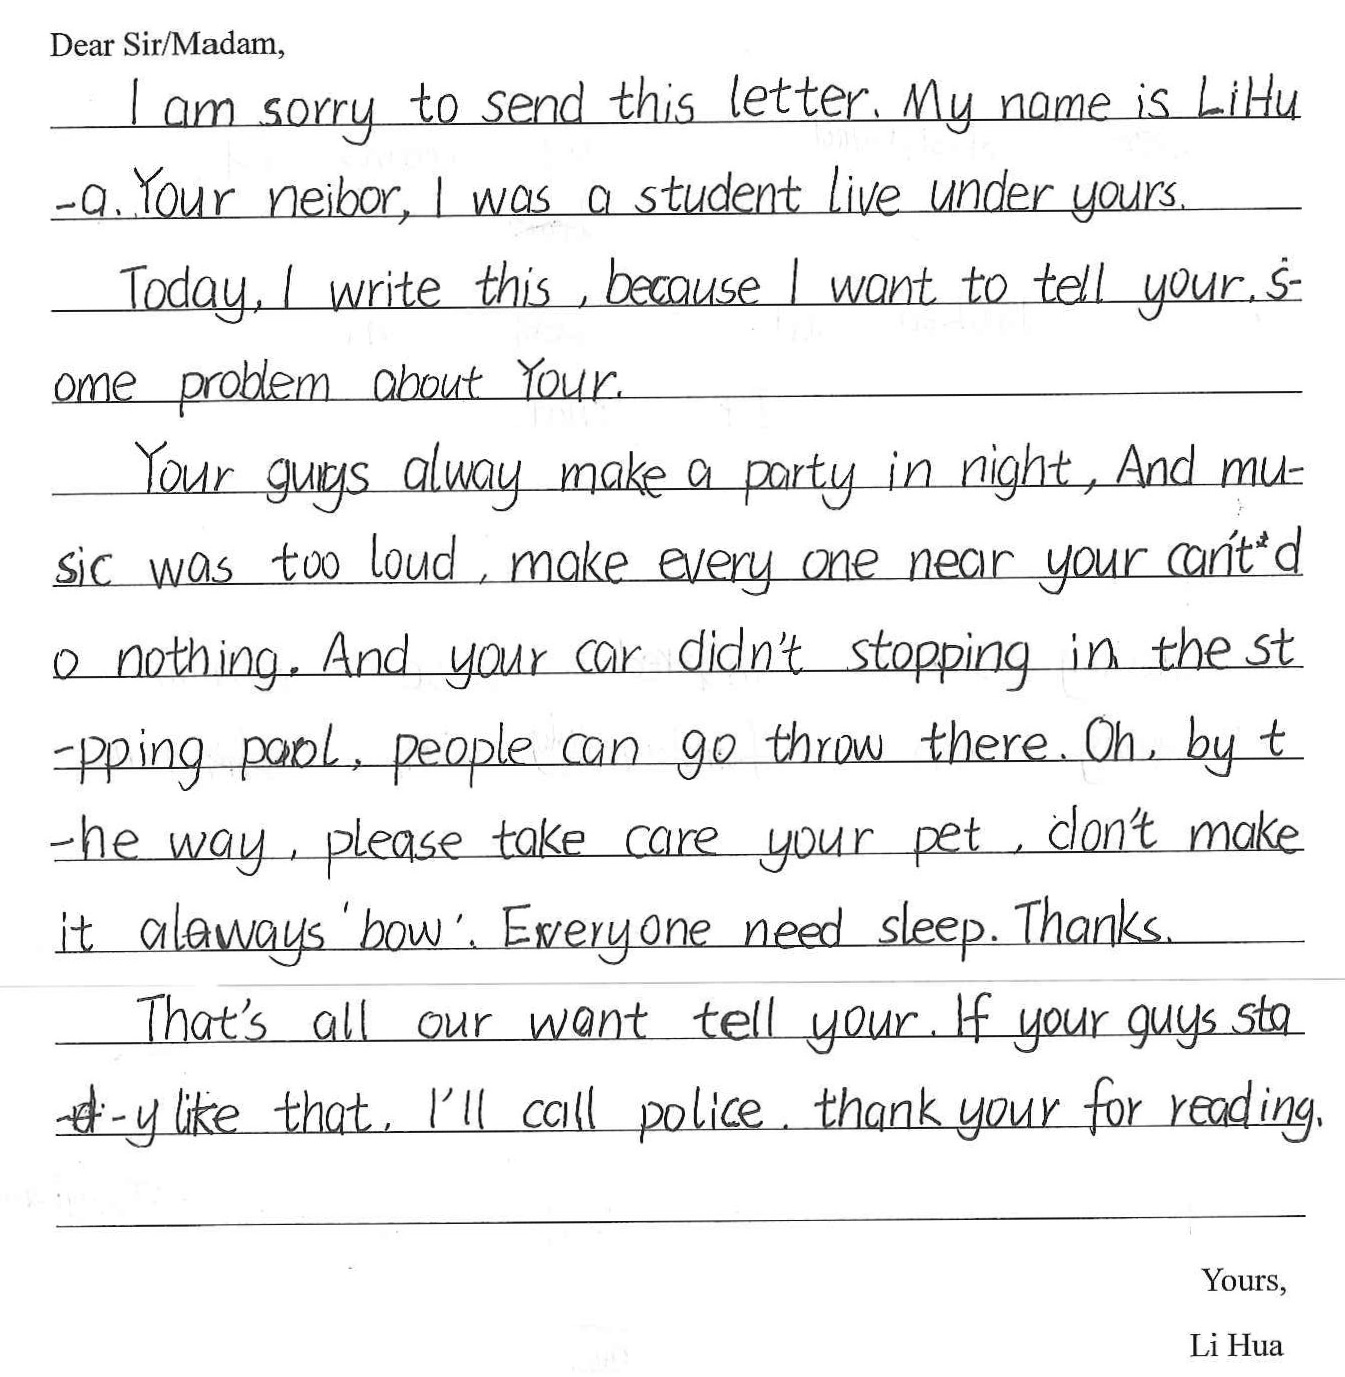 Dear Sir/Madam,
I am sorry to send this letter. My name is LiHu
-a. Your neibor, I was a student live under yours.
Today, I write this, because I want to tell your. s-
ome problem about Your.
Your guys alway make a party in night, And mu-
sic was too loud, make every one near your can't d
o nothing. And your car didn't stopping in the st
-pping paol, people can go throw there. Oh, by t
-he way, please take care your pet, don't make
it alaways 'bow'. Everyone need sleep. Thanks.
That's all our want tell your. If your guys sta
-y like that, I'll call police. thank your for reading.
Yours,
Li Hua